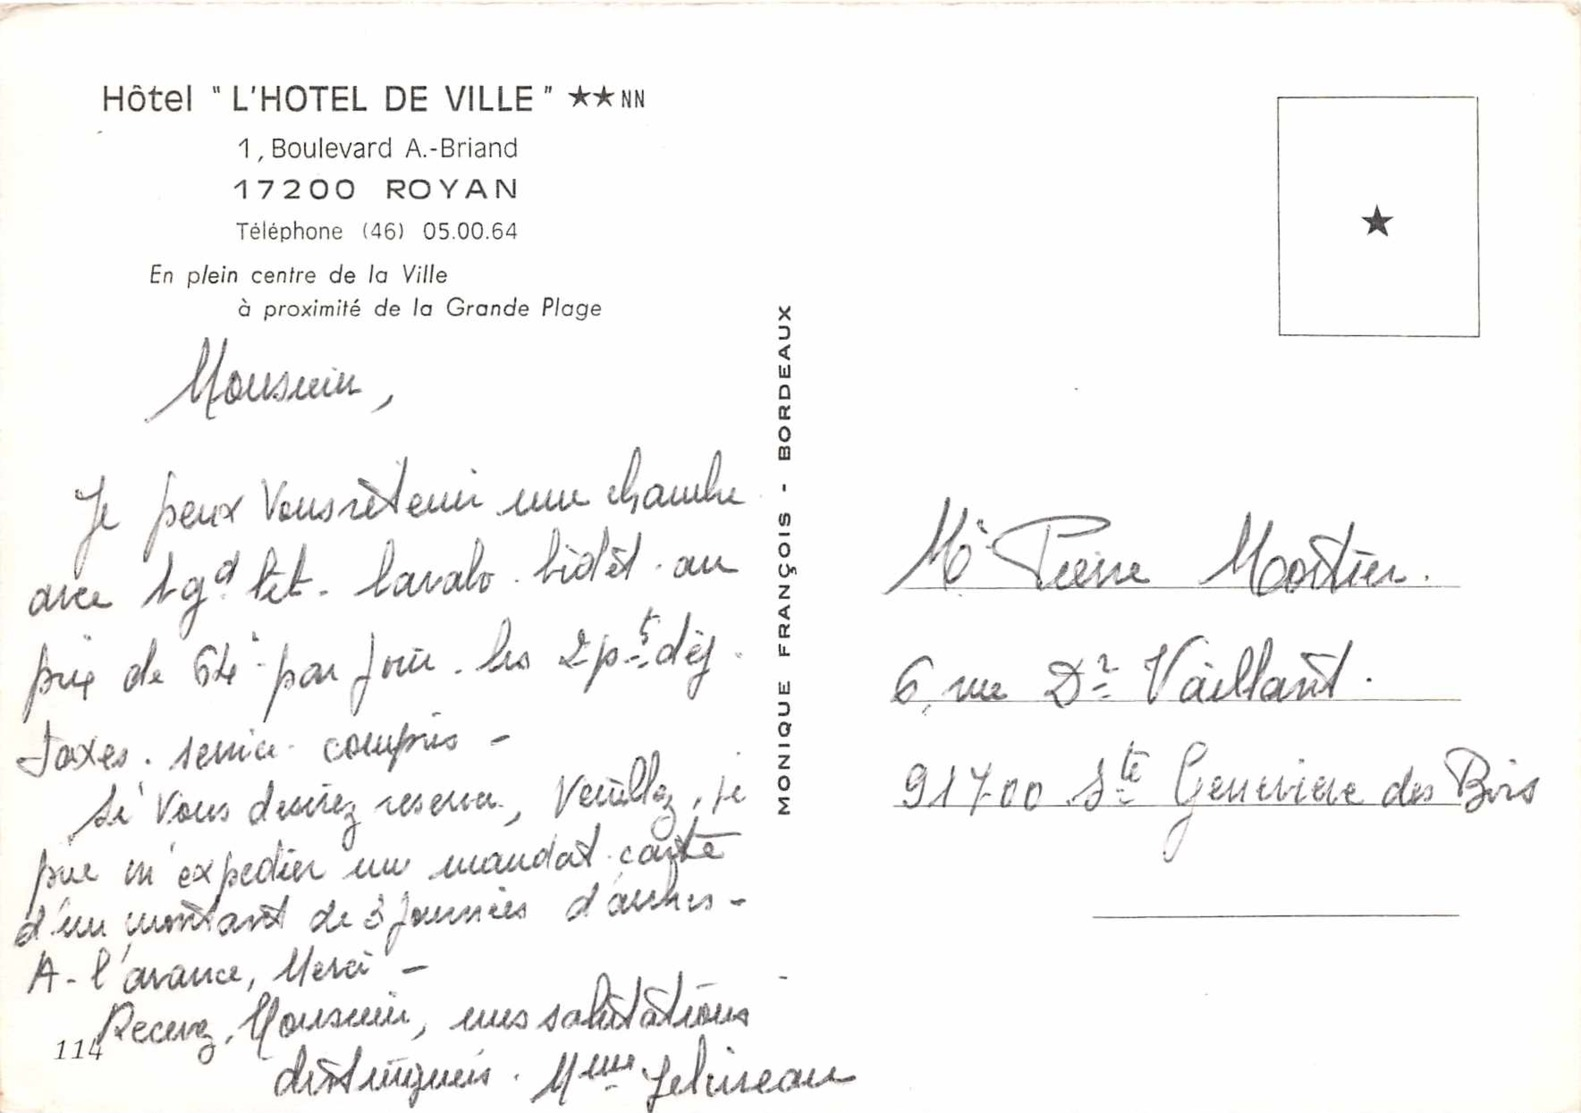 Hôtel " L'HOTEL DE VILLE " ★★ NN
1, Boulevard A.-Briand
17200 ROYAN
Téléphone (46) 05.00.64
En plein centre de la Ville
à proximité de la Grande Plage
Monsieur,
Je peux Vous rètenir une chambre
avec 1 gd lit. lavabo. bidèt. au
prix de 64 par jour. les 2 pts déj.
taxes. service. compris -
Si Vous desirez reserver, Veuillez, je
prie m'expedier un mandat. carte
d'un montant de 3 journées d'arrhes -
A - l'avance, Merci -
Recevez, Monsieur, mes salutations
distinguées. Mme
114
MONIQUE FRANÇOIS - BORDEAUX
★
Mr Pierre Mortier.
6, rue Dr Vaillant.
91700 Ste Genevieve des Bois